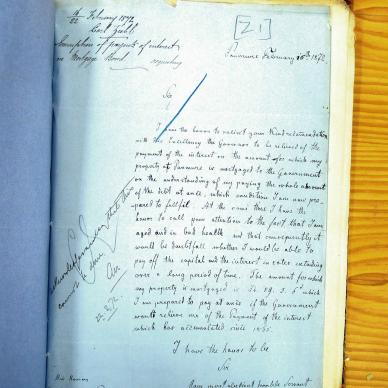 16/22 February 1872
Carl Zeeb
payment of interest
on Mortgage Bond
requesting
[Z1]
Panmure February 16th 1872
Sir
I have the honor to your kind recommendation
with His Excellency the Governor to be relieved of the
payment of the interest on the amount for which my
property at Panmure is mortgaged to the Government
on the understanding of my paying the whole amount
of the debt at once, which condition I am now pre-
pared to fulfil. At the same I have the
honor to call your attention to the fact that I am
aged and in bad health and that consequently it
would be doubtfull whether I would be able to
pay off the capital and the interest in rates extending
over a long period of time. The amount for which
my property is mortgaged is 19. 5. which
I am prepared to pay at once if the Government
would relieve me of the Payment of the interest
which has accumulated since
I have the honor to be
Sir
Your most obedient humble Servant
22.2.72.